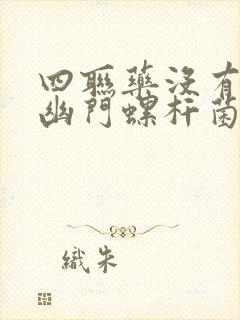 四聯藥沒有
幽門螺杆菌
織朱